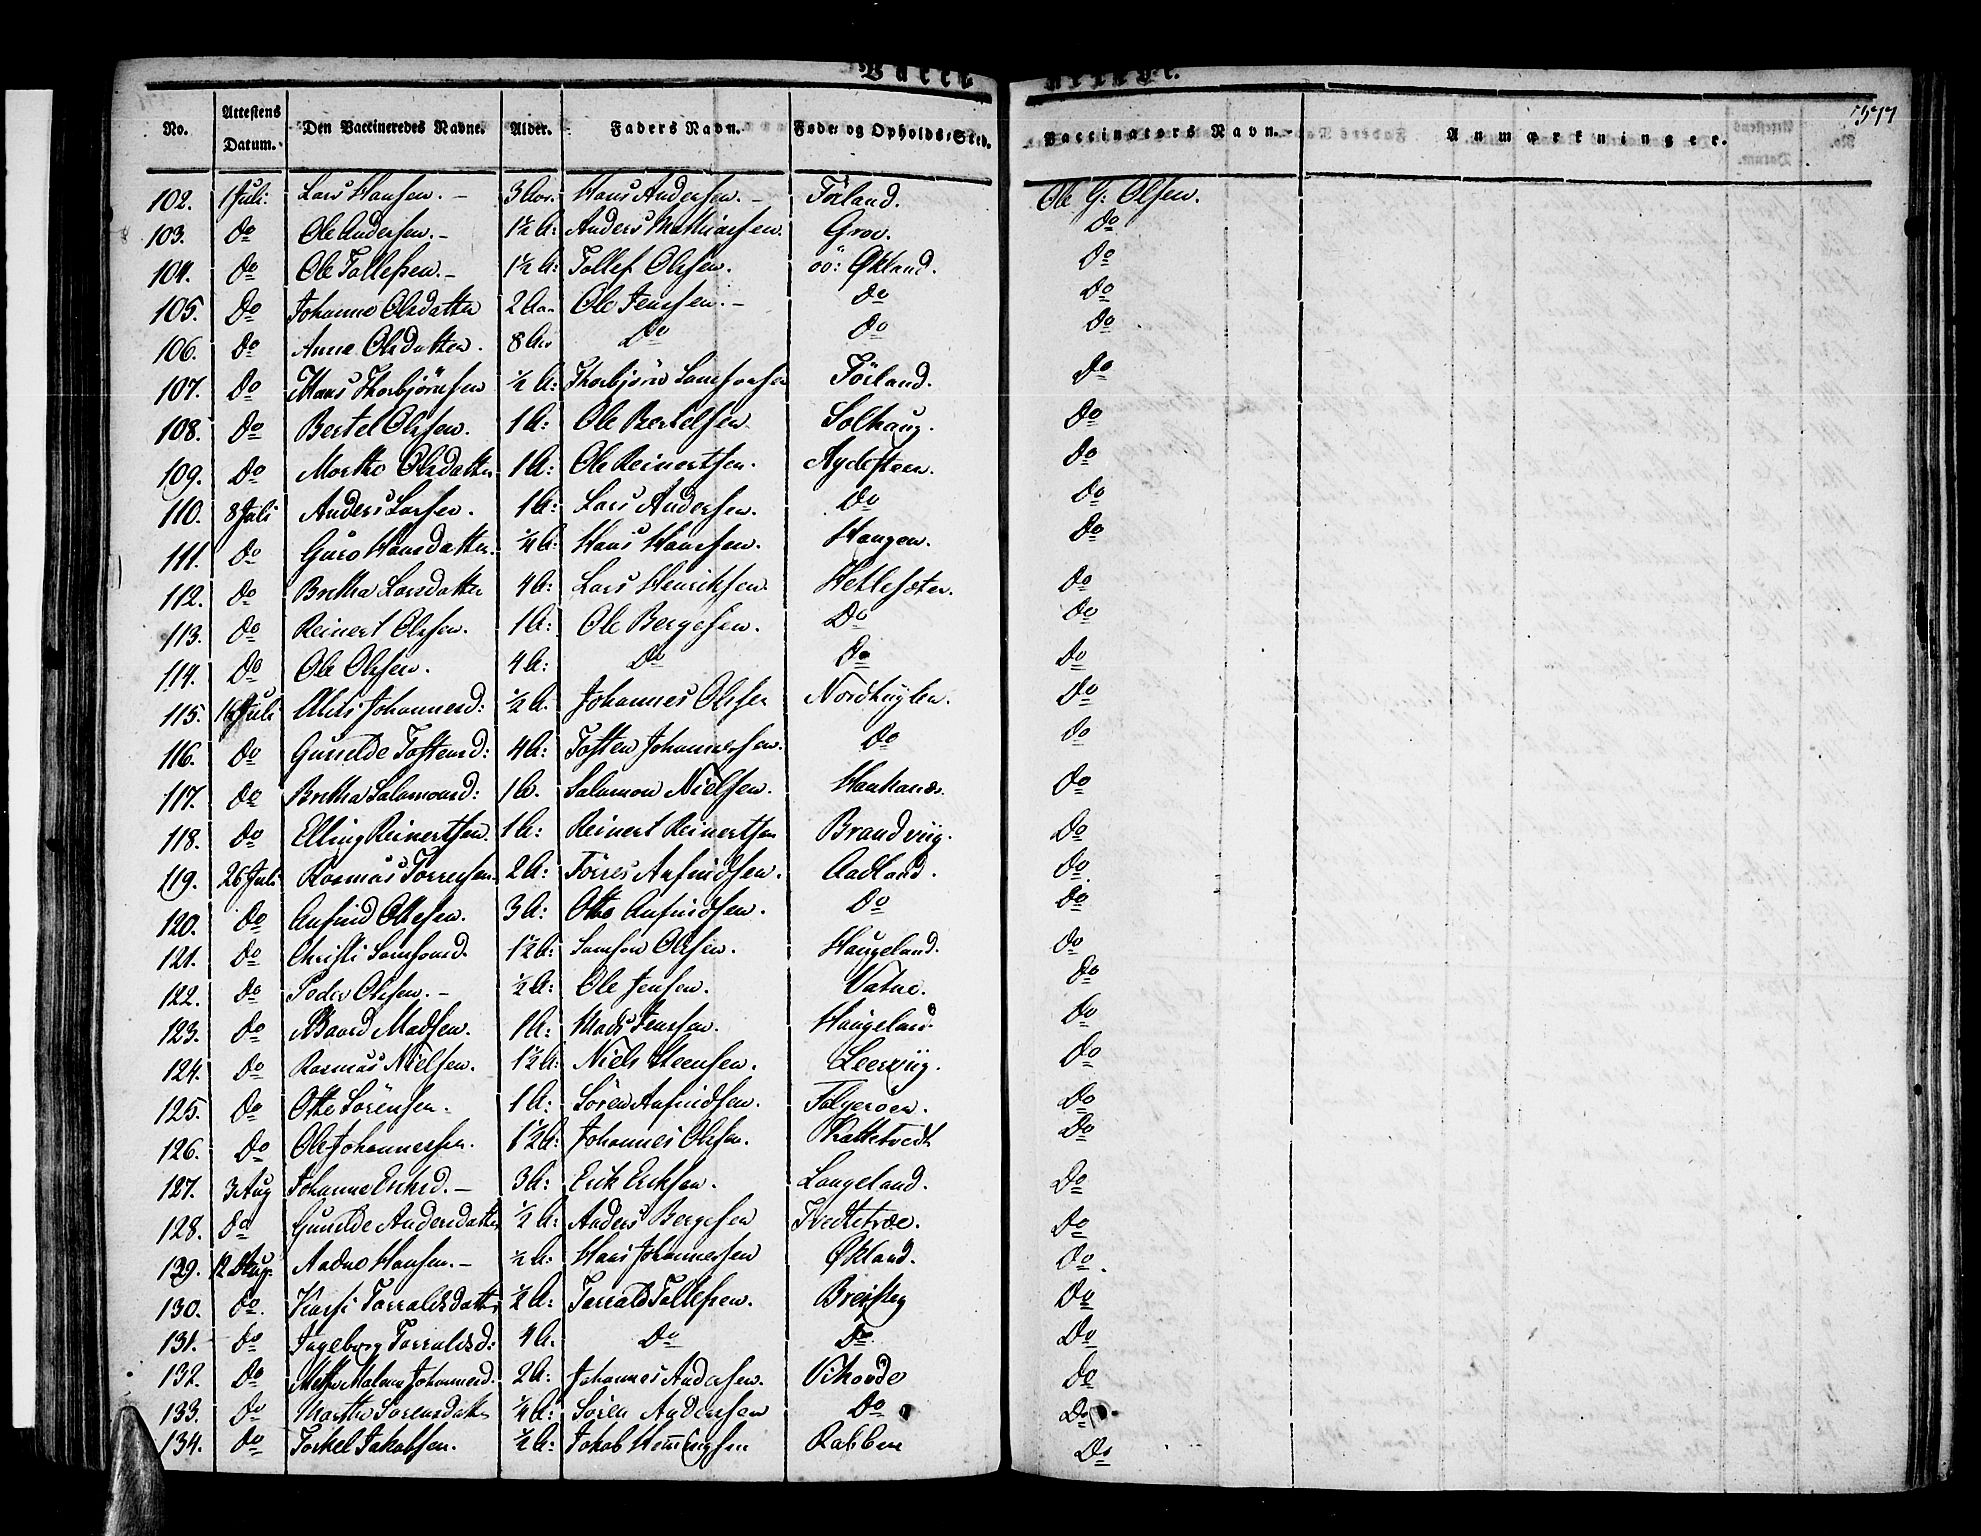 Vacci nerede.
No. Attestens Datum. Den Vaccineredes Navne. Alder. Faders Navn. Føde- og Opholds-Sted. Vaccinators Navn. Anmærkninger.
102. 1 Juli. Lars Hansen. – 3 Aar. Hans Andersen. – Törland. Ole G: Olsen.
103. Do Ole Andersen. – 1½ A: Anders Mathiassen. Grov. Do
104. Do Ole Tollefsen. – 1½ A: Tollef Olsen. Økland. Do
105. Do Johanne Olsdatter 2 Aar Ole Jensen. – Do Do
106. Do Anne Olsdatter. 8 Aar Do Do Do
107. Do Hans Thorbjörnsen ½ A: Thorbjörn Samsonsen Törland. Do
108. Do Bertel Olsen. 1 A: Ole Bertelsen. Solhaug. Do
109. Do Marthe Olsdatter 1 A: Ole Reinertsen. Rydesteen. Do
110. 8 Juli Anders Larsen. 1 A: Lars Andersen. Do Do
111. Do Guro Hansdatter. ¼ A: Hans Hansen. Haugen. Do
112. Do Brettha Larsdatter 4 A: Lars Henriksen. Hetlesæter. Do
113. Do Reinert Olsen. 1 A: Ole Bergesen. Do Do
114. Do Ole Olsen. 4 A: Do Do Do
115. 16 Juli Johannesd: ½ A. Johannes Olsen Nordhuglen. Do
116. Do Gunelde Tostensd: 4 A: Tosten Johannessen. Do Do
117. Do Brettha Salamonsd: 1 A. Salamon Nielsen. Haukanæs. Do
118. Do Elling Reinertsen. 1 A: Reinert Reinertsen Brandviig. Do
119. 26 Juli Rasmus Torresen. 2 A: Törres Anfindsen. Aadland. Do
120. Do Anfind Ottesen. 3 A: Otto Anfindsen. Do Do
121. Do Christi Samsonsd. 1½ A: Samson Olsen. Haugeland. Do
122. Do Peder Olsen. – ½ A: Ole Jensen. Vatne. Do
123. Do Baard Madsen. 1 A: Mads Jensen. Haugeland. Do
124. Do Rasmus Nielsen. 1½ A: Niels Steensen. Leerviig. Do
125. Do Otte Sörensen. 1 A: Sören Anfindsen. Folgeröen. Do
126. Do Ole Johannessen. 1½ A: Johannes Olsen. Kattetvedt Do
127. 3 Aug Johanne Eriksd. – 3 A: Erik Eriksen. Langeland. Do
128. Do Gunelde Andersdatter ½ A: Anders Bergesen Tvedtetræe. Do
129. 12 Aug. Aadne Hansen. – ½ A: Hans Johannessen Økland. Do
130. Do. Kari Torraldsdatter ½ A: Torrald Tollefsen. Breisteg Do
131. Do Ingeborg Torraldsd: 4 A. Do Do Do
132. Do Methe Malene Johannesd. 2 A: Johannes Andersen. Vikøride Do
133. Do Marthe Sørensdatter ¼ A: Sören Andersen Do Do
134. Do Torkel Jakobsen. ½ A: Jakob Hemingsen Rabben Do